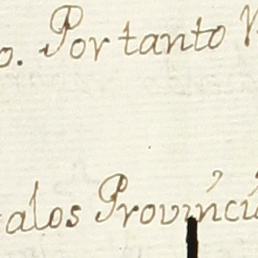 o. Por tanto
alos Provinci